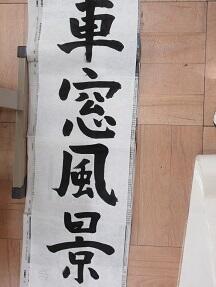 車窓風景